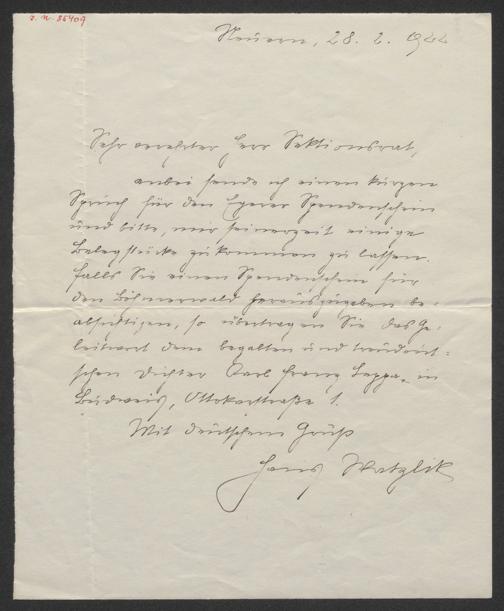 I. N. 86409
Neuern, 28. 2. 1922
Sehr verehrter Herr Sektionsrat,
anbei sende ich einen kurzen
Spruch für den Egerer Spendenschein
und bitte, mir seinerzeit einige
Belegstücke zukommen zu lassen.
Falls Sie einen Spendenschein für
den Böhmerwald herauszugeben be-
absichtigen, so übertragen Sie das Ge-
leitwort dem begabten und treudeut-
schen Dichter Karl Franz Leppa, in
Budweis, Ottokarstraße 1.
Mit deutschem Gruß
Hans Watzlik